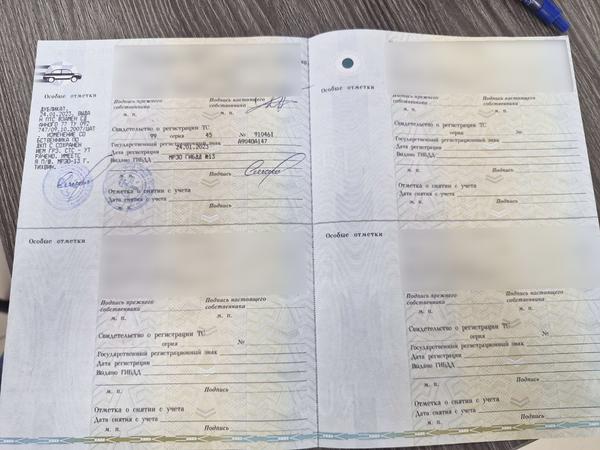 Особые отметки
ДУБЛИКАТ.
24.01.2023. ВЫДА
Н ПТС ВЗАМЕН СД
АННОГО 77 ТУ 092
747/09.10.2007/ЦАТ
ИЗМЕНЕНИЕ СО
БСТВЕННИКА ПО
ДКП С СОХРАНЕН
ИЕМ ГРЗ. СТС - УТ
РАЧЕНО. ИМЕЕТС
Я П/Ф. МРЭО-13 Г.
ТИХВИН.
Подпись прежнего собственника
Подпись настоящего собственника
м. п.
м. п.
Свидетельство о регистрации ТС
99 серия 45 № 910461
Государственный регистрационный знак А994ОА147
Дата регистрации 24.01.2023
Выдано ГИБДД МРЭО ГИБДД №13
Подпись
Отметка о снятии с учета
Дата снятия с учета
м. п.
Подпись
Подпись прежнего собственника
Подпись настоящего собственника
м. п.
м. п.
Свидетельство о регистрации ТС
серия №
Государственный регистрационный знак
Дата регистрации
Выдано ГИБДД
м. п.
Подпись
Отметка о снятии с учета
Дата снятия с учета
м. п.
Подпись
Особые отметки
Подпись прежнего собственника
Подпись настоящего собственника
м. п.
м. п.
Свидетельство о регистрации ТС
серия №
Государственный регистрационный знак
Дата регистрации
Выдано ГИБДД
м. п.
Подпись
Отметка о снятии с учета
Дата снятия с учета
м. п.
Подпись
Особые отметки
Подпись прежнего собственника
Подпись настоящего собственника
м. п.
м. п.
Свидетельство о регистрации ТС
серия №
Государственный регистрационный знак
Дата регистрации
Выдано ГИБДД
м. п.
Подпись
Отметка о снятии с учета
Дата снятия с учета
м. п.
Подпись
Особые отметки